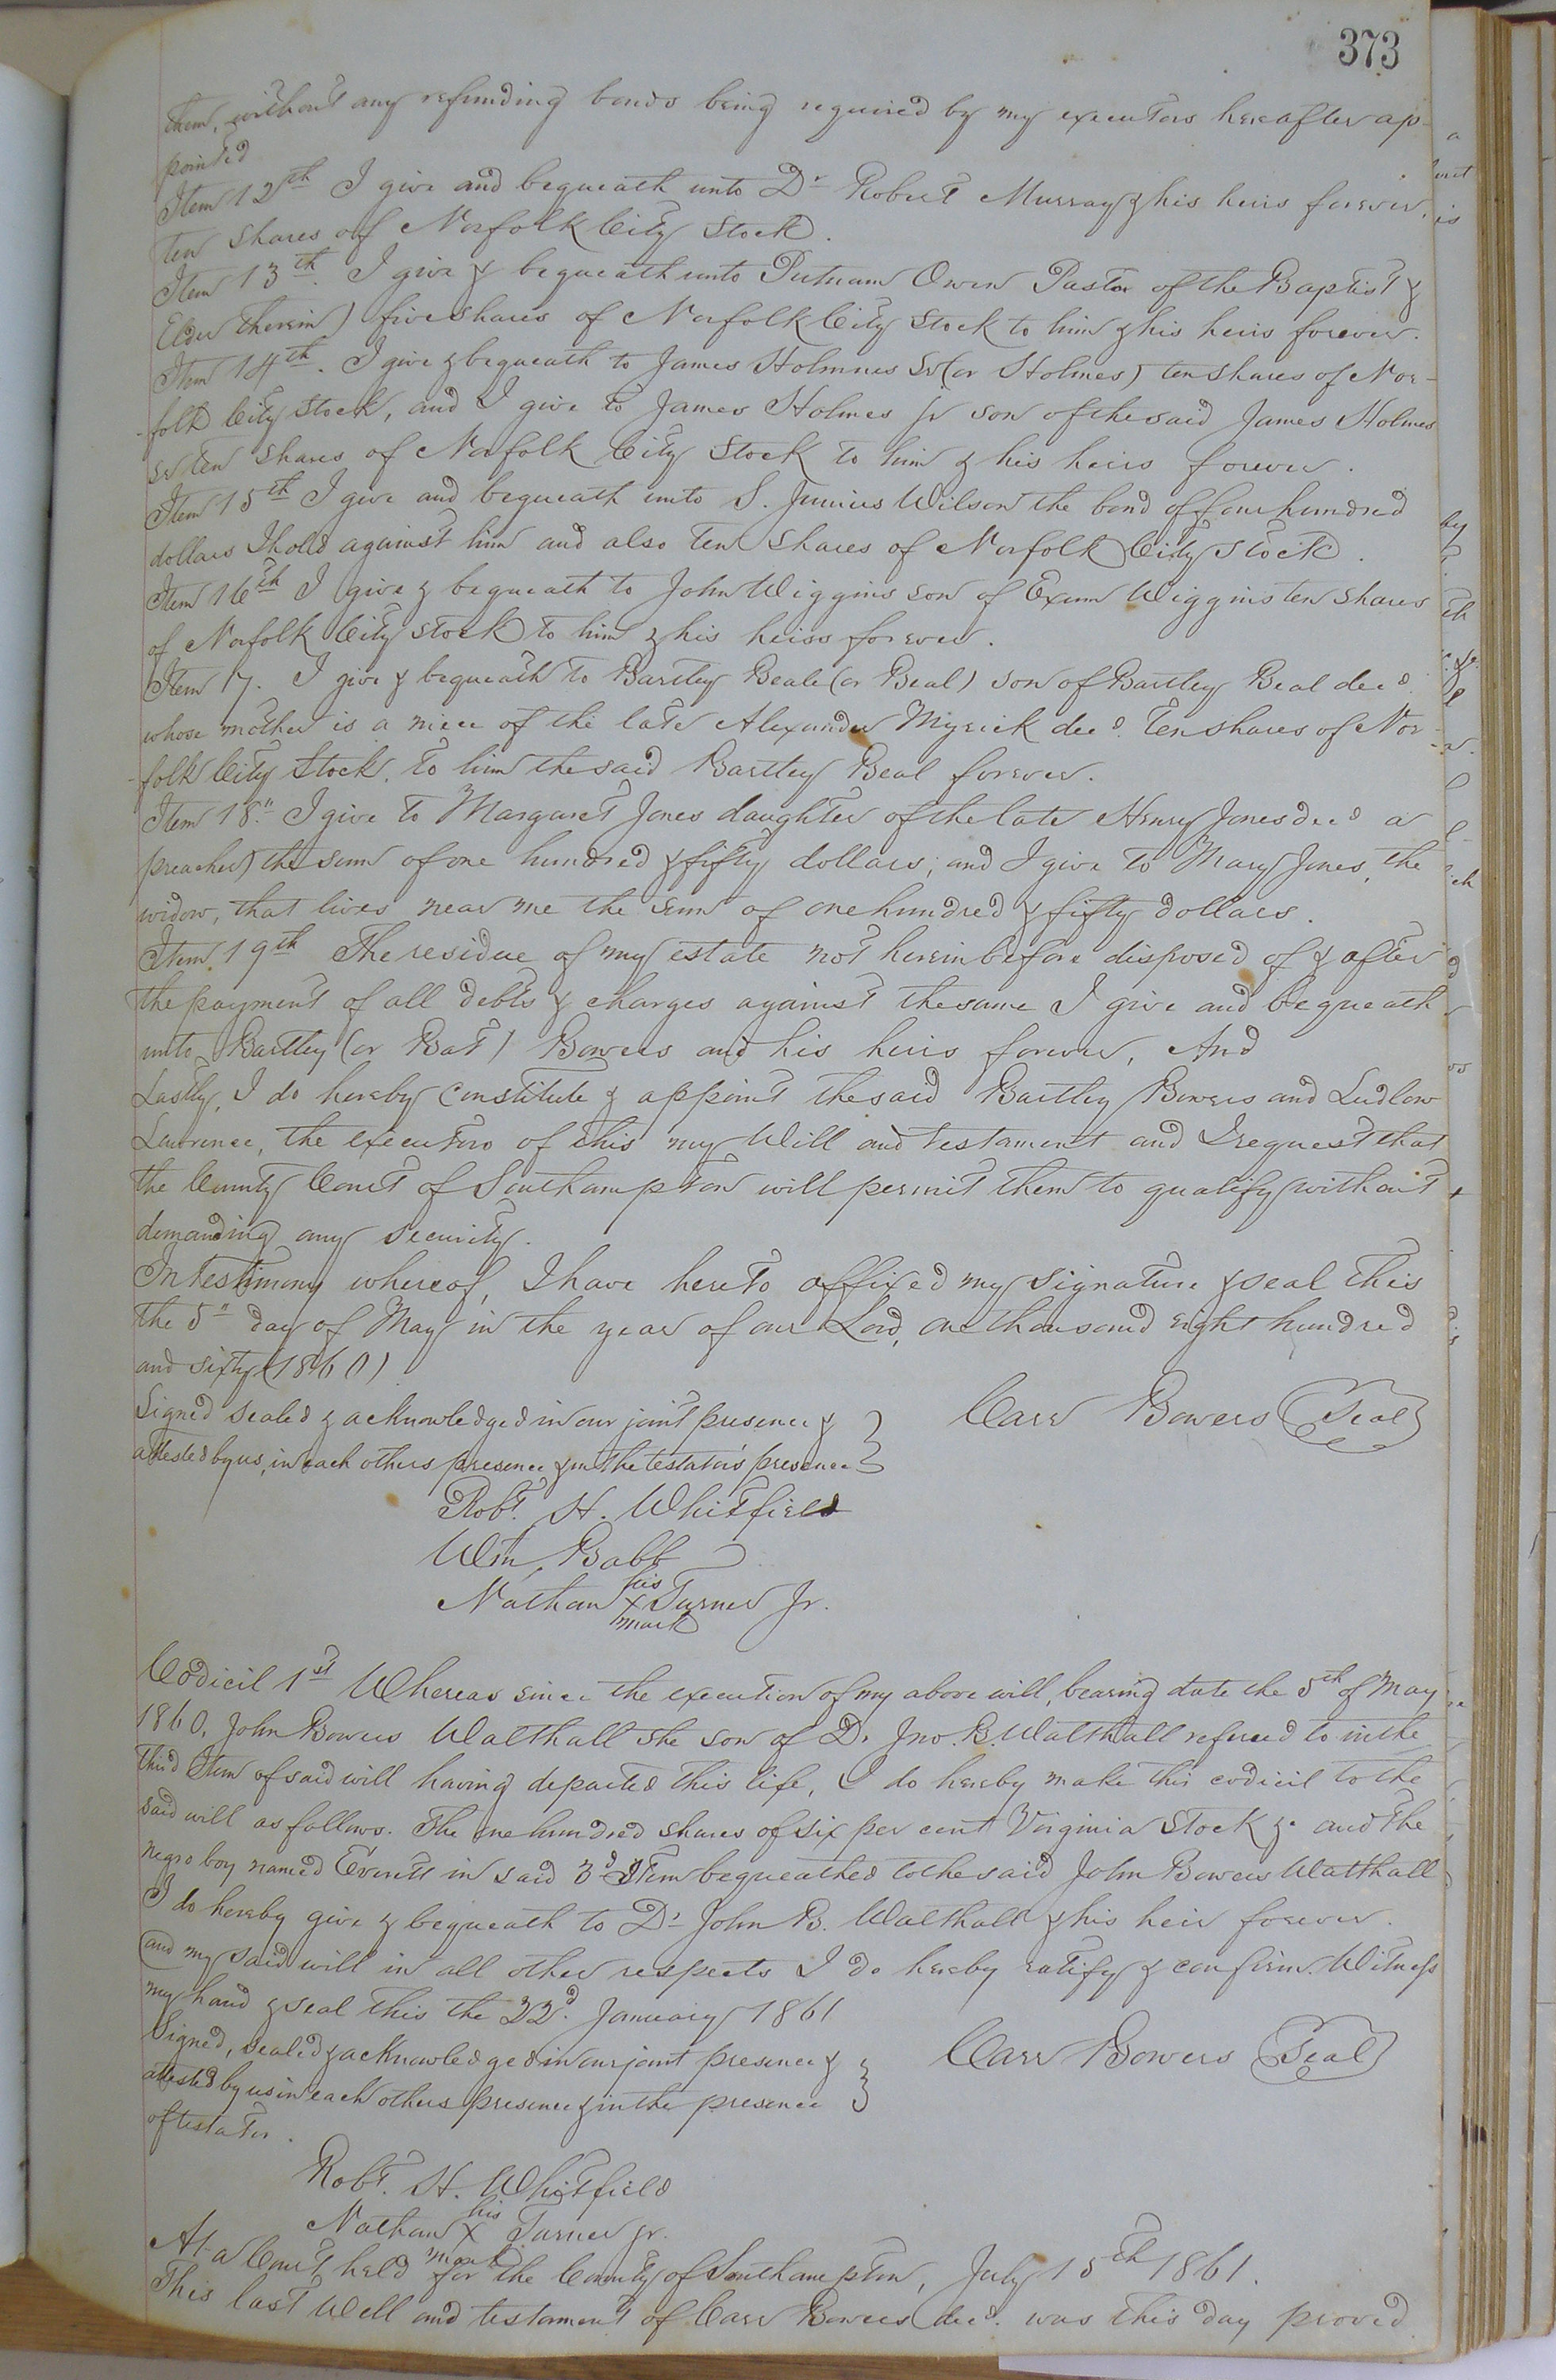 373
them, without any refunding bonds being required by my executors hereafter ap-
pointed
Item 12th I give and bequeath unto Dr Robert Murray & his heirs forever,
ten shares of Norfolk City Stock.
Item 13th. I give & bequeath unto Putnam Owen Pastor of the Baptist &
Elder therein) five shares of Norfolk City Stock to him & his heirs forever.
Item 14th. I give & bequeath to James Holmnes Sr (or Holmes) ten shares of Nor-
-folk City Stock, and I give to James Holmes Jr son of the said James Holmes
Sr ten shares of Norfolk City Stock to him & his heirs forever.
Item 15th I give and bequeath unto S. Junius Wilson the bond of four hundred
dollars I hold against him and also ten shares of Norfolk City Stock.
Item 16th I give & bequeath to John Wiggins son of Exum Wiggins ten shares
of Norfolk City Stock to him & his heirs forever.
Item 17. I give & bequeath to Bartley Beale (or Beal) son of Bartley Beal decd.
whose mother is a niece of the late Alexander Myrick decd. ten shares of Nor-
-folk City Stock, to him the said Bartley Beal forever.
Item 18." I give to Margaret Jones daughter of the late Henry Jones decd a
preacher) the sum of one hundred & fifty dollars; and I give to Mary Jones, the
widow, that lives near me the sum of one hundred & fifty dollars.
Item 19th The residue of my estate not hereinbefore disposed of & after
the payment of all debts & charges against the same I give and bequeath
unto Bartley (or Bat) Bowers and his heirs forever, And
Lastly, I do hereby constitute & appoint the said Bartley Bowers and Ludlow
Lawrence, the executors of this my Will and testament and I request that
the County Court of Southampton will permit them to qualify without
demanding any security.
In testimony whereof, I have hereto affixed my signature & seal this
the 5" day of May in the year of our Lord, one thousand eight hundred
and sixty (1860)
Signed sealed & acknowledged in our joint presence &
attested by us, in each others presence & in the testators presence
Carr Bowers Seal
Robt. H. Whitfield
Wm. Babb
his
Nathan X Turner Jr.
mark
Codicil 1st Whereas since the execution of my above will, bearing date the 5th of May
1860, John Bowers Walthall the son of Dr Jno. B. Walthall refered to in the
third Item of said will having departed this life, I do hereby make this codicil to the
said will as follows. The one hundred shares of six per cent Virginia Stock &c and the
negro boy named Everett in said 3d Item bequeathed to the said John Bowers Walthall
I do hereby give & bequeath to Dr John B. Walthall & his heir forever.
and my said will in all other respects I do hereby ratify & confirm. Witness
my hand & seal this the 22d. January 1861
Signed, sealed & acknowledged in our joint presence &
attested by us in each others presence & in the presence
of testator.
Carr Bowers Seal
Robt. H. Whitfield
his
Nathan X Turner Jr.
mark
At a Court held for the County of Southampton, July 15th 1861.
This last Will and testament of Carr Bowers decd. was this day proved